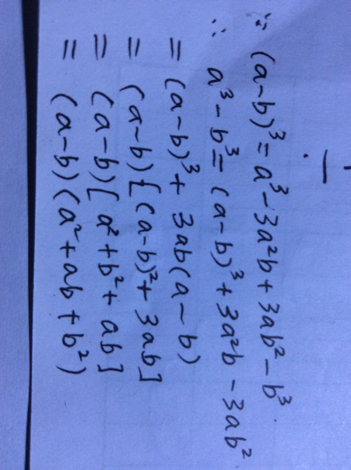 ∵ (a-b)³ = a³-3a²b+3ab²-b³
∴ a³-b³ = (a-b)³+3a²b-3ab²
= (a-b)³+3ab(a-b)
= (a-b)[(a-b)²+3ab]
= (a-b)[a²+b²+ab]
= (a-b)(a²+ab+b²)